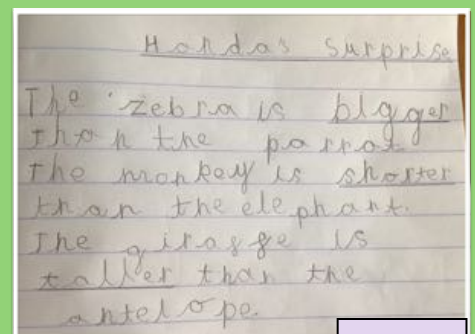 Handas Surprise
The zebra is bigger
than the parrot
The monkey is shorter
than the elephant.
The giraffe is
taller than the
antelope.